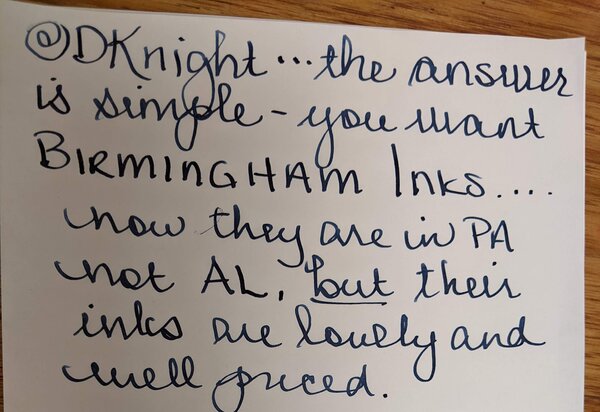 @DKnight...the answer
is simple - you want
BIRMINGHAM INKS....
now they are in PA
not AL, but their
inks are lovely and
well priced.